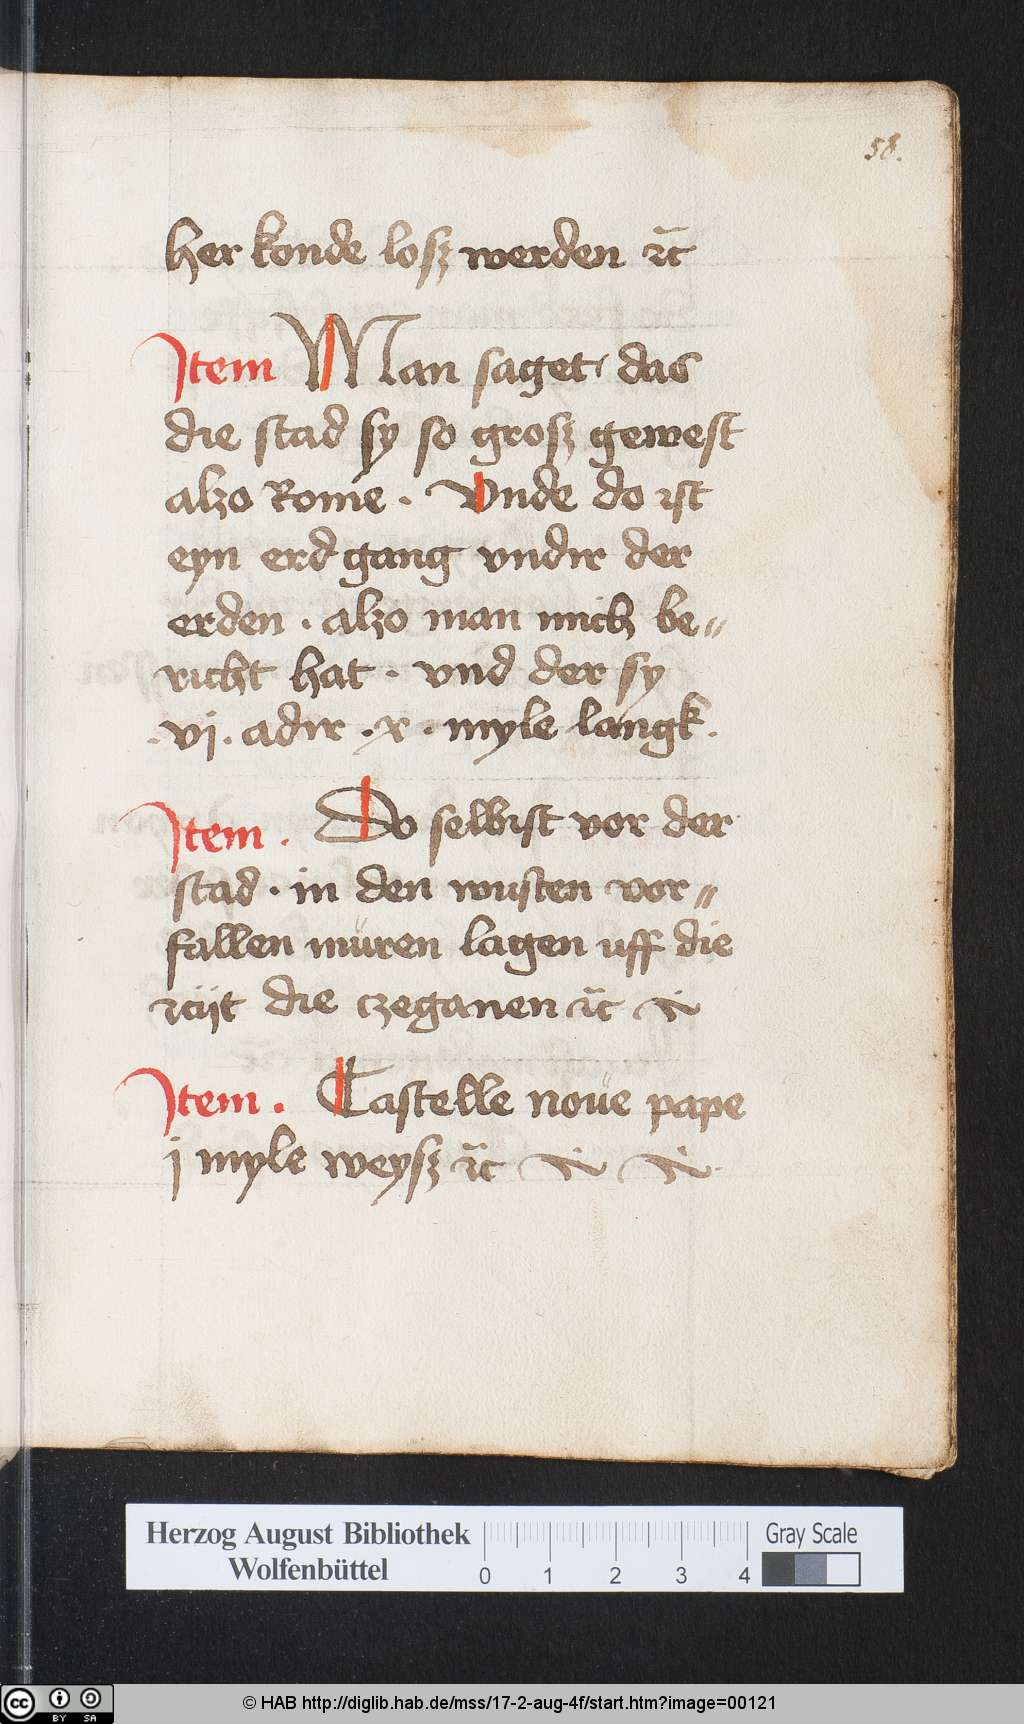 58.
her konde losz werden ꝛc̄
Item Man saget das
die stad sy so grosz gewest
alzo Rome . Vnde do ist
eyn erd gang vndir der
erden . alzo man mich be„
richt hat . vnd der sy
.vj. adir .x. myle langk.
Item . Do selbist vor der
stad . in den wusten vor„
fallen müren lagen uff die
zijt die czeganen ꝛc̄
Item . Castelle noüe pape
j myle weysz ꝛc̄
Herzog August Bibliothek
Wolfenbüttel
0 1 2 3 4
Gray Scale
cc BY SA
© HAB http://diglib.hab.de/mss/17-2-aug-4f/start.htm?image=00121